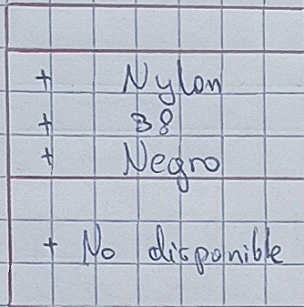 + Nylon
+ 38
+ Negro
+ No disponible